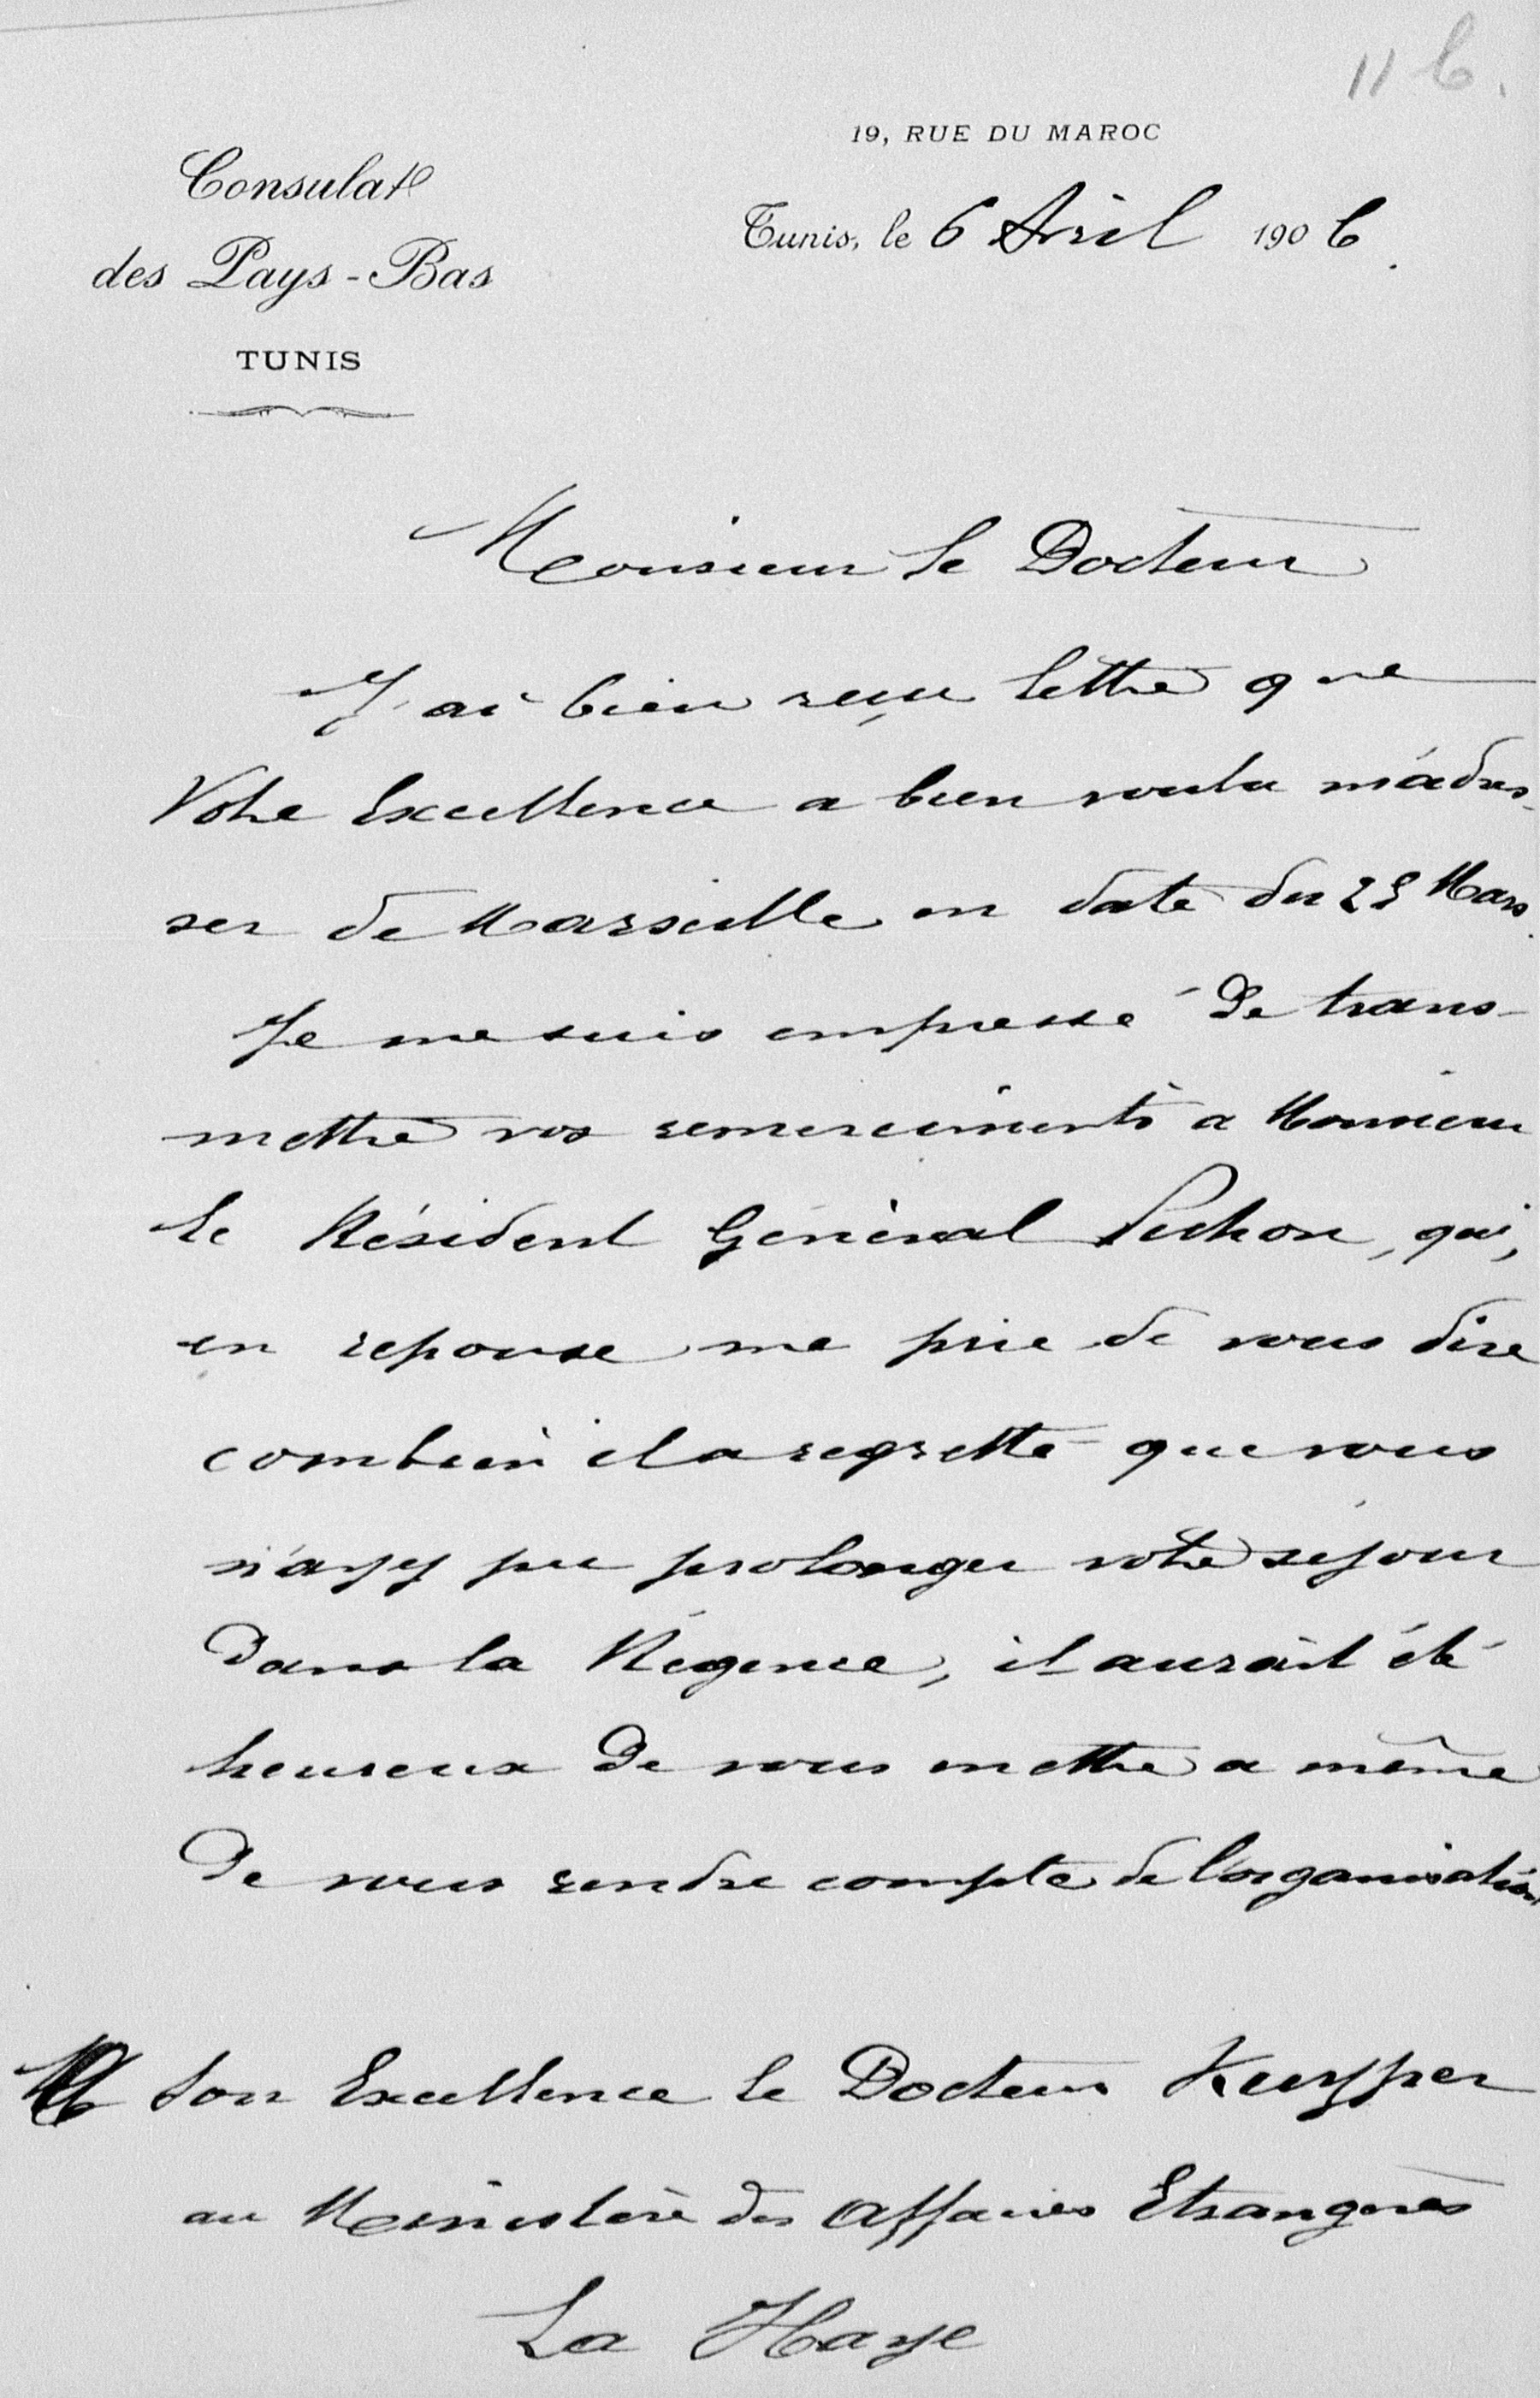 11 b.
19, RUE DU MAROC
Consulat
des Pays-Bas
TUNIS
Tunis, le 6 Avril 1906.
Monsieur le Docteur
J'ai bien reçu lettre que
Votre Excellence a bien voulu m'adres-
ser de Marseille en date du 23 Mars.
Je me suis empressé de trans-
mettre vos remerciments a Monsieur
le Résident Général Pichon, qui,
en reponse me prie de vous dire
combien il a regretté que vous
n'ayez pu prolonger votre séjour
dans la Régence, il aurait été
heureux de vous mettre a même
de vous rendre compte de l'organisation
A Son Excellence le Docteur Kuyper
au Ministère des Affaires Etrangères
La Haye